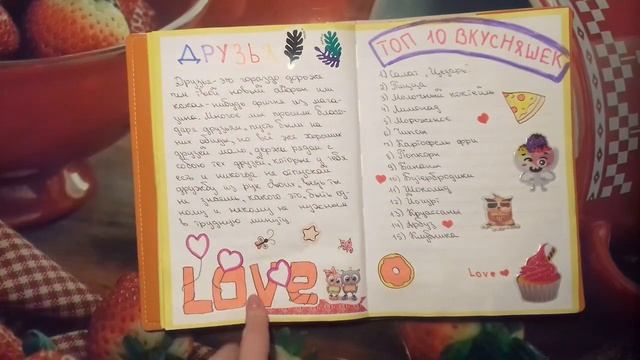 ДРУЗЬЯ
Друзья-это гораздо дороже
чем твой новый айфон или
какая-нибудь фишка из мага-
зина. Многое мы прошли благо-
даря друзьям, пусть были на
них обиды, но всё же хороших
друзей мало, держи рядом с
собою тех друзей, которые у тебя
есть и никогда не отпускай
дружбу из рук своих, ведь ты
не знаешь, какого это, быть од-
ному и никому не нужным
в трудную минуту.
LOVE
ТОП 10 ВКУСНЯШЕК
1) Салат "Цезарь"
2) Пицца
3) Молочный коктейль
4) Лимонад
5) Мороженое
6) Чипсы
7) Картофель фри
8) Попкорн
9) Бананы
10) Бутербродики
11) Шоколад
12) Йогурт
13) Круассаны
14) Арбуз
15) Клубника
Love